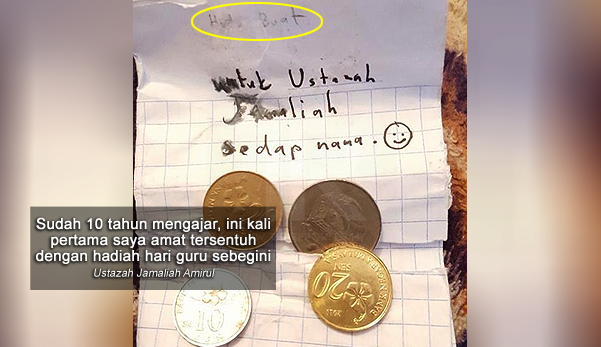 Buat
untuk Ustazah
Jamaliah
sedap nama.
Sudah 10 tahun mengajar, ini kali
pertama saya amat tersentuh
dengan hadiah hari guru sebegini
Ustazah Jamaliah Amirul
20
SEN
10